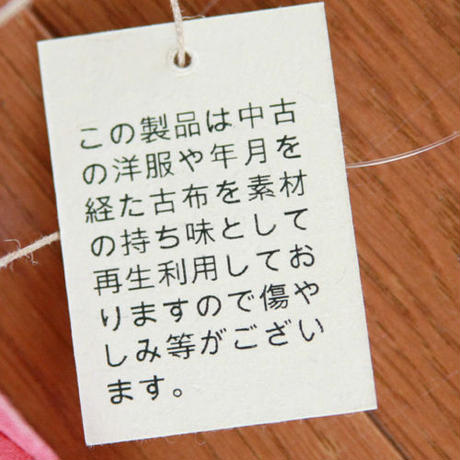 この製品は中古
の洋服や年月を
経た古布を素材
の持ち味として
再生利用してお
りますので傷や
しみ等がござい
ます。